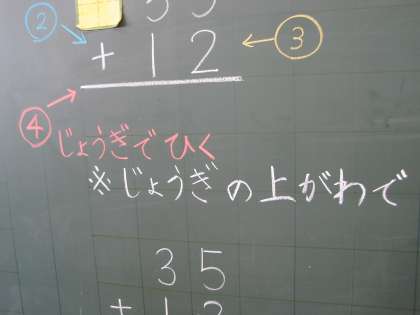 ② 35
+ 12 ③
④
じょうぎでひく
※じょうぎの上がわで
35
+ 12